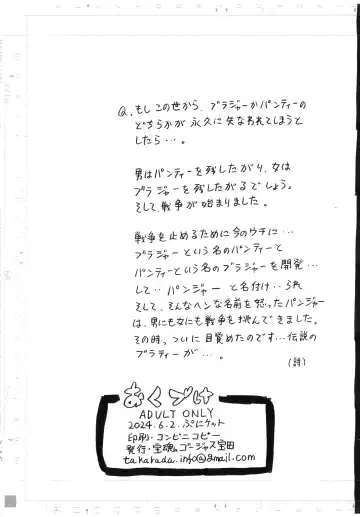 Q. もしこの世から、ブラジャーかパンティーの
どちらかが永久に失なわれてしまうと
したら…。
男はパンティーを残したがり、女は
ブラジャーを残したがるでしょう。
そして、戦争が始まりました。
戦争を止めるために今のウチに…
ブラジャーという名のパンティーと
パンティーという名のブラジャーを開発…
して‥パンジャーと名付け‥られ
そして、そんなヘンな名前を怒ったパンジャー
は、男にも女にも戦争を挑んできました。
その時、ついに目覚めたのです…伝説の
ブラティーが…。
(詩)
おくづけ
ADULT ONLY
2024.6.2.ぷにケット
印刷・コンビニコピー
発行・宝魂&ゴージャス宝田
takarada.info@gmail.com